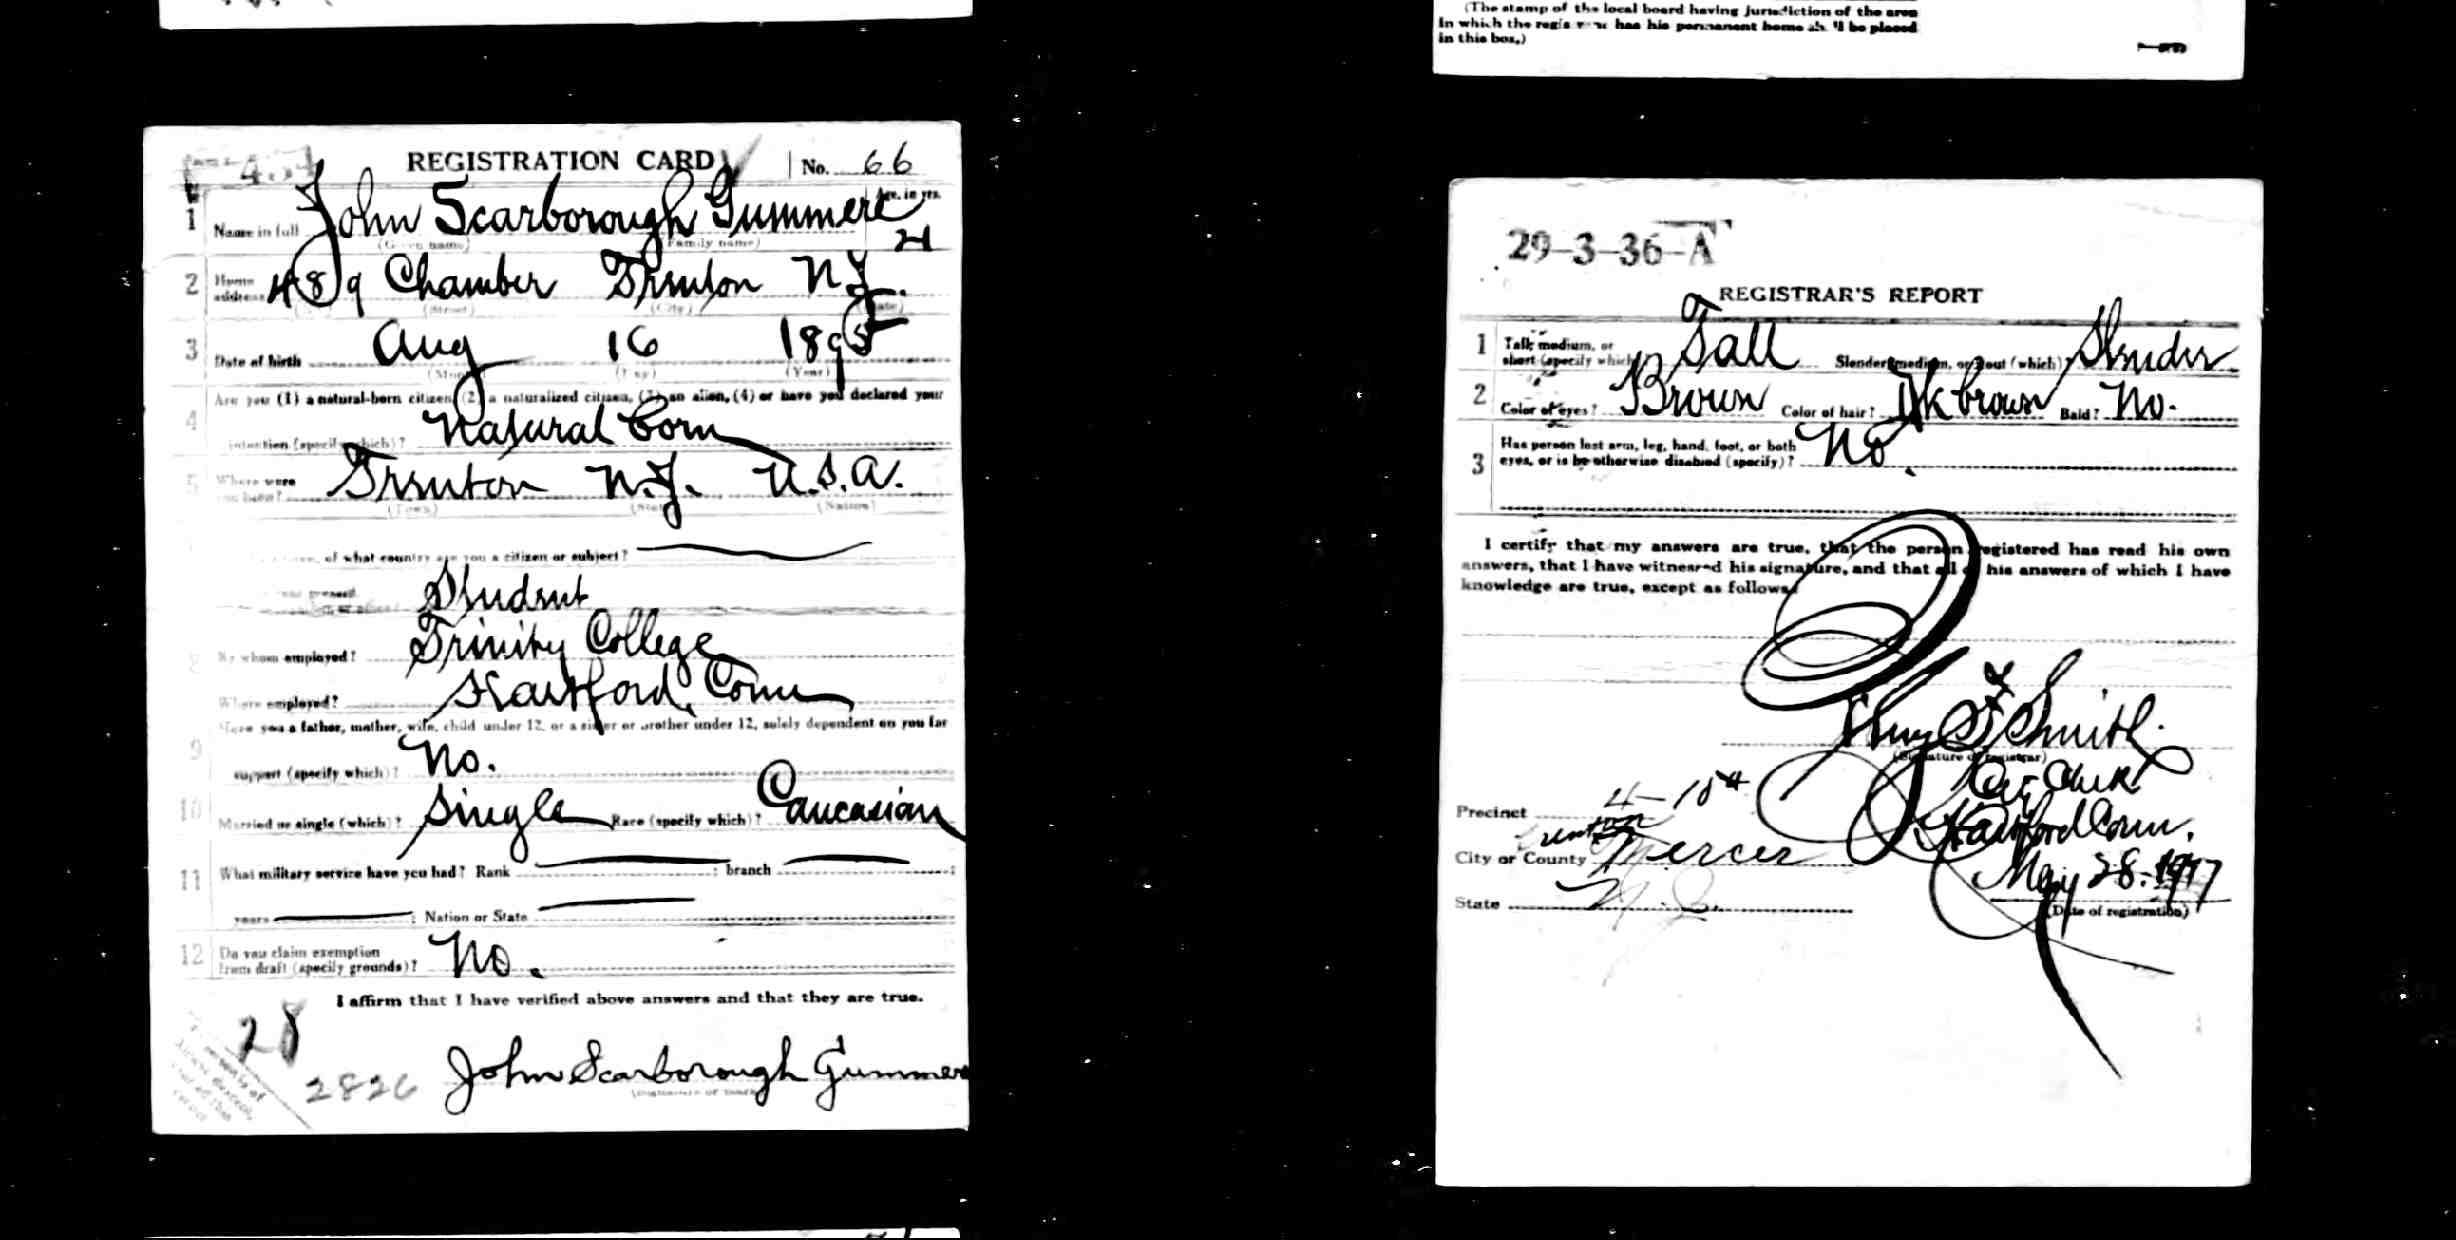 (The stamp of the local board having jurisdiction of the area
in which the registrant has his permanent home shall be placed
in this box.)
REGISTRATION CARD No. 66
1 Name in full John Scarborough Gummere Age, in yrs. 21
(Given name) (Family name)
2 Home address 489 Chamber Trenton N.J.
(Street) (City) (State)
3 Date of birth Aug 16 1895
(Month) (Day) (Year)
4 Are you (1) a natural-born citizen, (2) a naturalized citizen, (3) an alien, (4) or have you declared your
intention (specify which)? Natural Born
5 Where were you born? Trenton N.J. U.S.A.
(Town) (State) (Nation)
of what country are you a citizen or subject?
Student
8 By whom employed? Trinity College
Where employed? Hartford, Conn
9 Have you a father, mother, wife, child under 12, or a sister or brother under 12, solely dependent on you for
support (specify which)? No.
10 Married or single (which)? Single Race (specify which)? Caucasian
11 What military service have you had? Rank ; branch ;
years ; Nation or State
12 Do you claim exemption
from draft (specify grounds)? No.
I affirm that I have verified above answers and that they are true.
28
2826 John Scarborough Gummere
29-3-36-A
REGISTRAR'S REPORT
1 Tall, medium, or
short (specify which)? Tall Slender, medium, or stout (which)? Slender
2 Color of eyes? Brown Color of hair? Dk brown Bald? No.
3 Has person lost arm, leg, hand, foot, or both
eyes, or is he otherwise disabled (specify)? No.
I certify that my answers are true, that the person registered has read his own
answers, that I have witnessed his signature, and that all of his answers of which I have
knowledge are true, except as follows:
Smith
(Signature of registrar)
City Clerk
Hartford Conn.
Precinct 4-10th
City or County Trenton Mercer
State N.J.
May 28. 1917
(Date of registration)